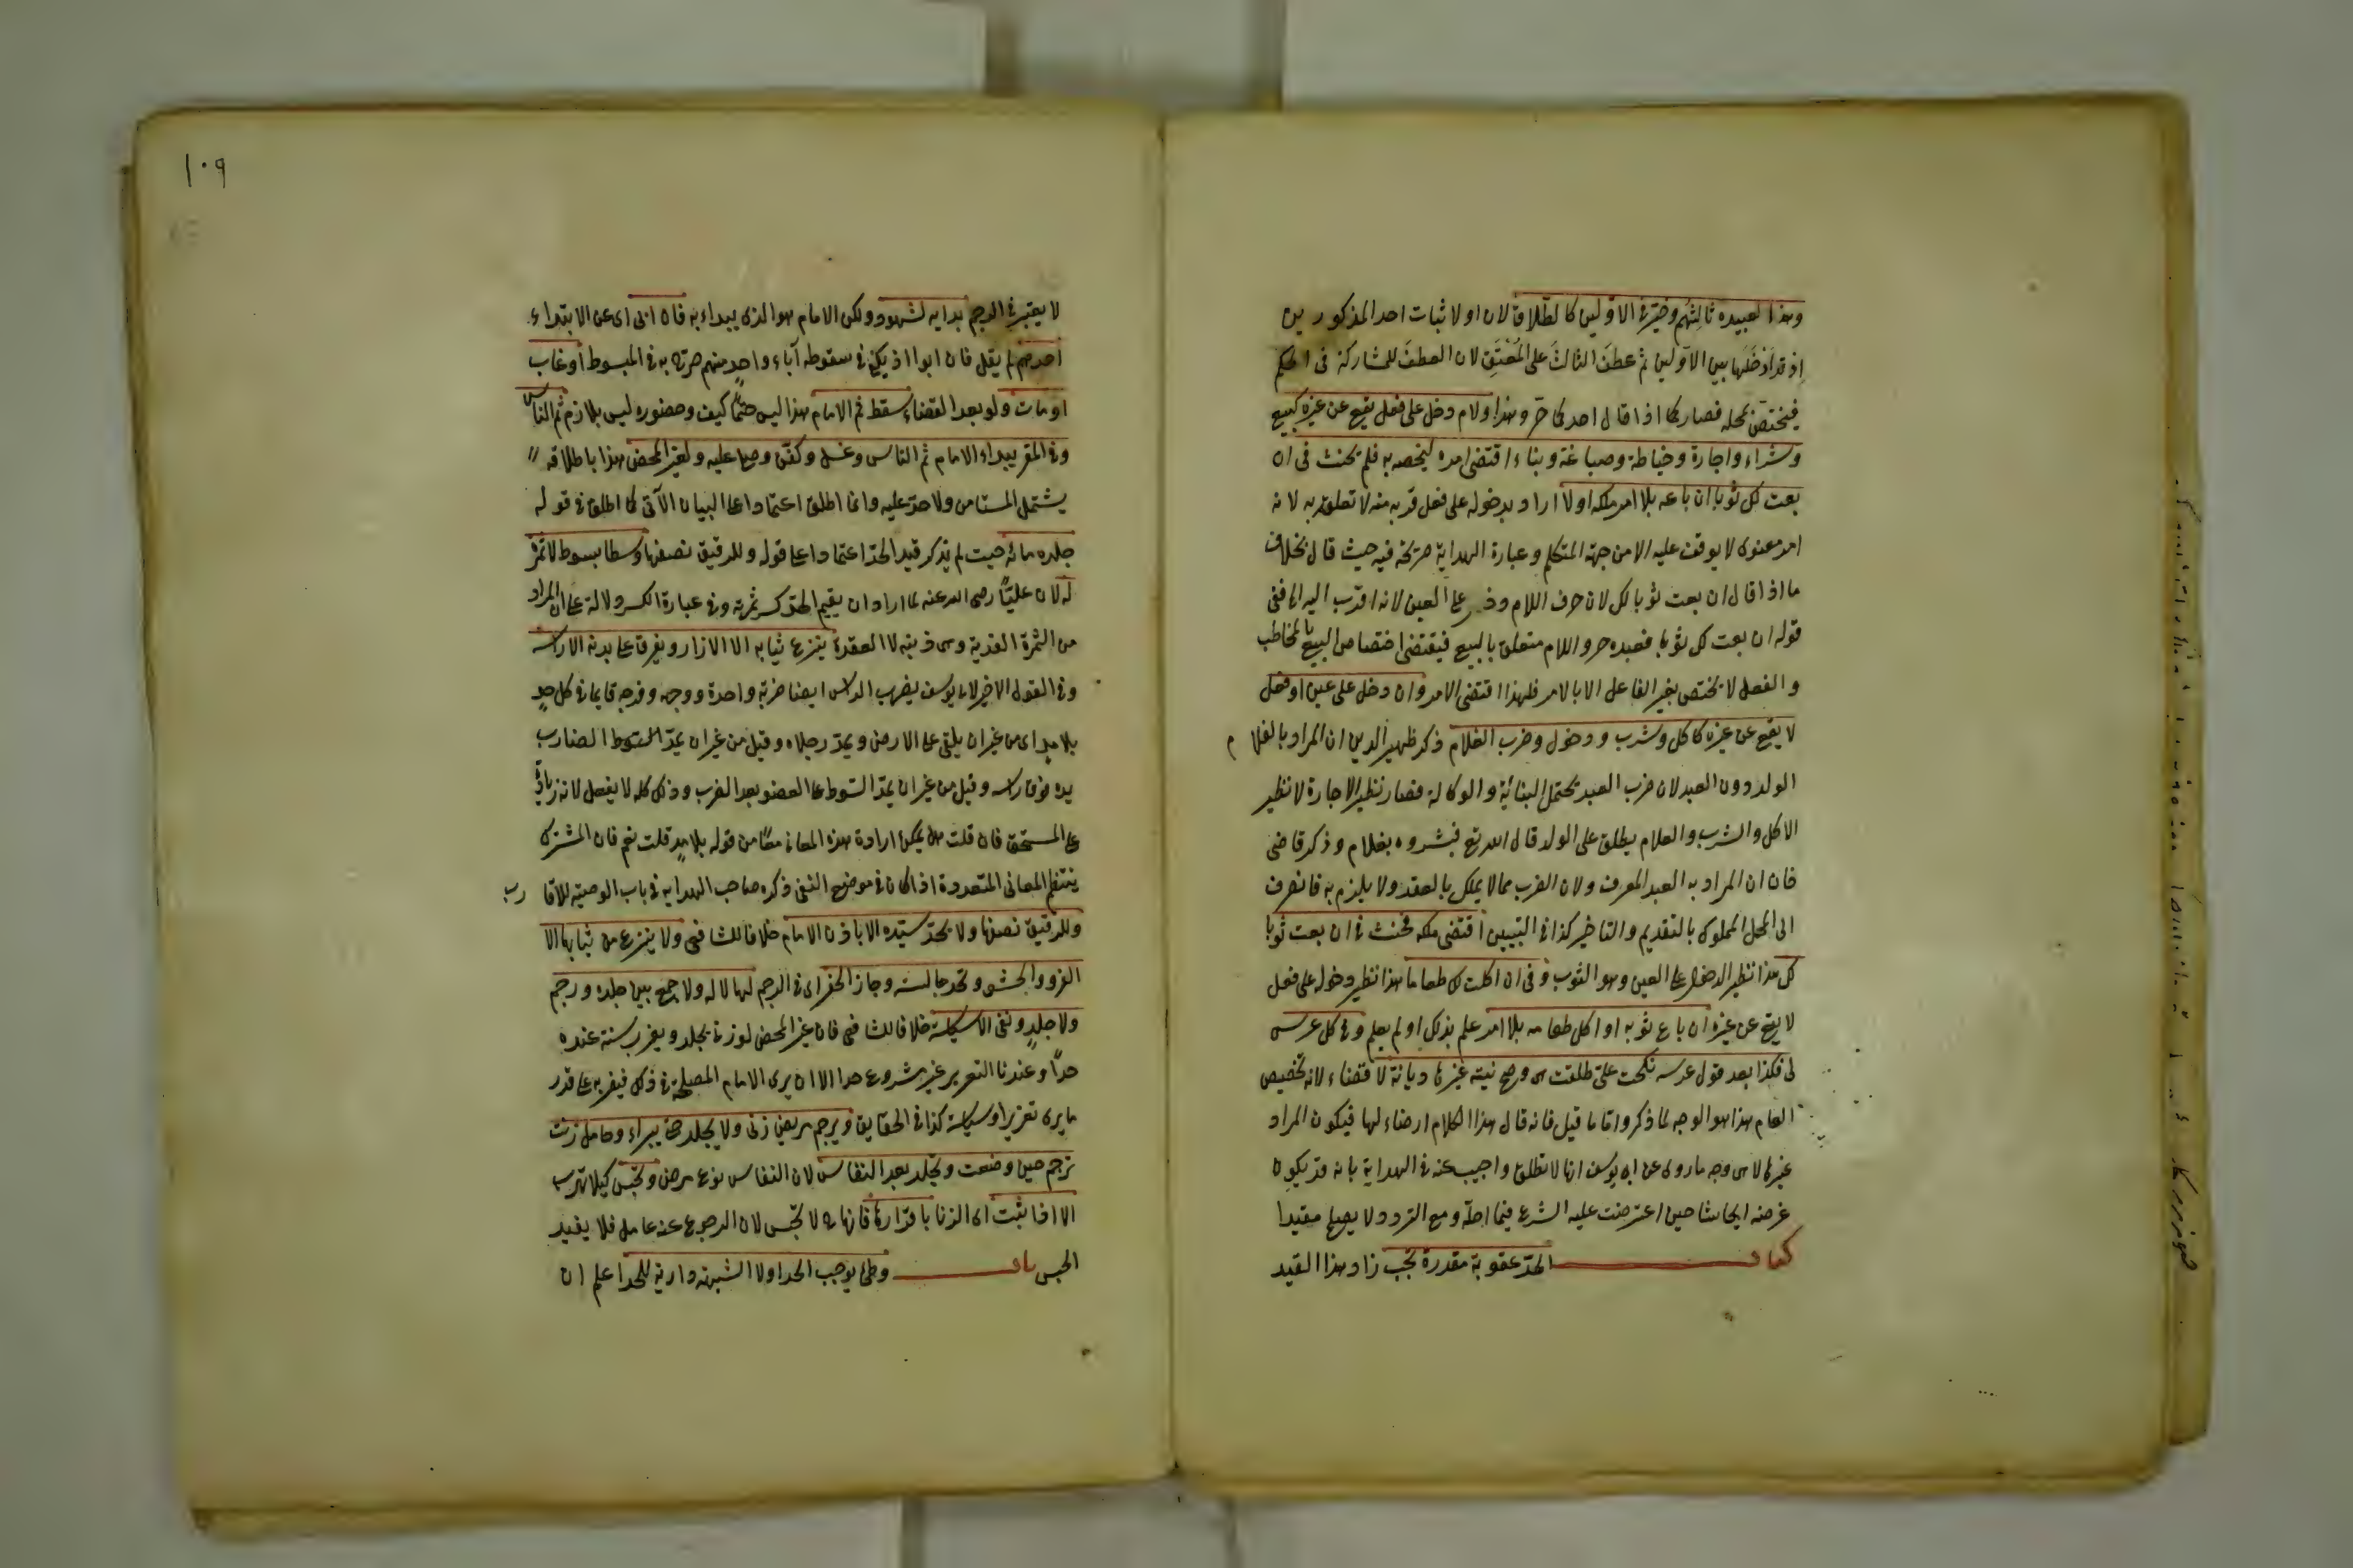 وهذا لعبيده ثالثهم وخيّر في الاوّلين كالطلاق لان او لاثبات احد المذكورين
اذ قد ادخلها بين الاوّلين ثم عطف الثالث على المُعْتَق لان العطف للمشاركة في الحكم
فيختصّ بمحله فصار كما اذا قال احدكما حرّ وهذا ولام دخل على فعل يقع عن غيره كبيع
وشراء واجارة وخياطة وصباغة وبناء اقتضى امره ليخصه به فلم يحنث في ان
بعت لك ثوبا ان باعه بلا امر ملكه اولا اراد بدخوله على فعل قربه منه لا تعلقه به لانه
امر معنوى لا يوقف عليه الا من جهة المتكلم وعبارة الهداية صريحة فيه حيث قال بخلاف
ما اذا قال ان بعت ثوبا لك لان حرف اللام دخل على العين لانه اقرب اليه ففى
قوله ان بعت لك ثوبا فعبده حر واللام متعلق بالبيع فيقتضى اختصاص البيع بالمخاطب
والفعل لا يختص بغير الفاعل الا بالامر فلهذا اقتضى الامر وان دخل على عين او فعل
لا يقع عن غيره كاكل وشرب ودخول وضرب الغلام ذكر ظهير الدين ان المراد بالغلام
الولد دون العبد لان ضرب العبد يحتمل النيابة والوكالة فصار نظير الاجارة لا نظير
الاكل والشرب والغلام يطلق على الولد قال الله تع فبشروه بغلام وذكر قاضى
خان ان المراد به العبد للعرف ولان الضرب مما لا يملك بالعقد ولا يلزم به فانصرف
الى المحل المملوك بالتقديم والتاخير كذا في التبيين اقتضى ملكه فحنث في ان بعت ثوبا
لك هذا نظير الدخول على العين وهو الثوب وفى ان اكلت لك طعاما هذا نظير دخوله على فعل
لا يقع عن غيره ان باع ثوبه او اكل طعامه بلا امر علم بذلك او لم يعلم وفي كل عرس
لى فكذا بعد قول عرسه نكحت علىّ طلقت هى وصح نية غيرها ديانة لا قضاء لانه تخصيص
العام هذا هو الوجه لما ذكروا ما قيل فانه قال هذا الكلام ارضاء لها فيكون المراد
غيرها لان وجه ما روى عن ابى يوسف انها لا تطلق واجيب عنه في الهداية بانه قد يكون
غرضه ايحاشها حين اعترضت عليه الشرع فيما احلّه ومع التردد لا يصلح مقيدا
كتاب الحدّ عقوبة مقدرة تجب زاد هذا القيد
١٠٩
لا يعتبر في الرجم بداية الشهود ولكن الامام هو الذى يبداء به فان ابى اى عن الابتداء
احدهم لم يقل فان ابوا اذ يكفى في سقوطه آباء واحد منهم صرّح به في المبسوط او غاب
او مات ولو بعد القضاء سقط ثم الامام هذا ليس حتمًا كيف وحضوره ليس بلازم ثم الناس
وفي المقر يبداء الامام ثم الناس وغسل وكفّن وصلى عليه ولغير المحصن هذا باطلاقه
يشتمل المستامن ولا حدّ عليه وانما اطلق اعتمادا على البيان الآتى كما اطلق في قوله
جلده مائة حيث لم يذكر قيد الحدّ اعتمادا على قوله وللرقيق نصفها وسطا بسوط لا ثمرة
له لان عليّا رضى الله عنه لما اراد ان يقيم الحدّ كسر ثمرته وفي عبارة الكسر دلالة على ان المراد
من الثمرة العذبة وهى ذنبه لا العقدة ينزع ثيابه الا الازار ويفرق على بدنه الا راسه
وفي القول الاخير لابى يوسف يضرب الراس ايضا ضربة واحدة ووجهه وفرجه قايما في كل حدٍ
بلا مدٍ اى من غير ان يلقى على الارض ويمدّ رجلاه وقيل من غير ان يمدّ السوط الضارب
يده فوق راسه وقيل من غير ان يمدّ السوط على العضو بعد الضرب وذلك كله لا يفعل لانه زيادة
على المستحق فان قلت هل يمكن ارادة هذه المعانى معًا من قوله بلا مدٍ قلت نعم فان المشترك
ينتظم المعانى المتعددة اذا كان في موضع النفى ذكره صاحب الهداية في باب الوصية للاقارب
وللرقيق نصفها ولا يحدّ سيّده الا باذن الامام خلافا للشافعى ولا ينزع من ثيابها الا
الفرو والحشو وتحد جالسة وجاز الحفر اى في الرجم لها لا له ولا جمع بين جلد ورجم
ولا جلدٍ ونفى الا سياسة خلافا للشافعى فان غير المحصن لو زنى يجلد ويغرب سنة عنده
حدًا وعندنا التغريب غير مشروع حدا الا ان يرى الامام المصلحة في ذلك فيغربه على قدر
ما يرى تعزيرا وسياسة كذا في الحقايق ويرجم مريض زنى ولا يجلد حتى يبراء وحامل زنت
ترجم حين وضعت وتجلد بعد النفاس لان النفاس نوع مرض وتحبس كيلا تهرب
الا اذا ثبت اى الزنا باقرارها فانها ح لا تحبس لان الرجوع عنه عامل فلا يفيد
الحبس باب وطئ يوجب الحد اولا الشبهة دارئة للحد اعلم ان